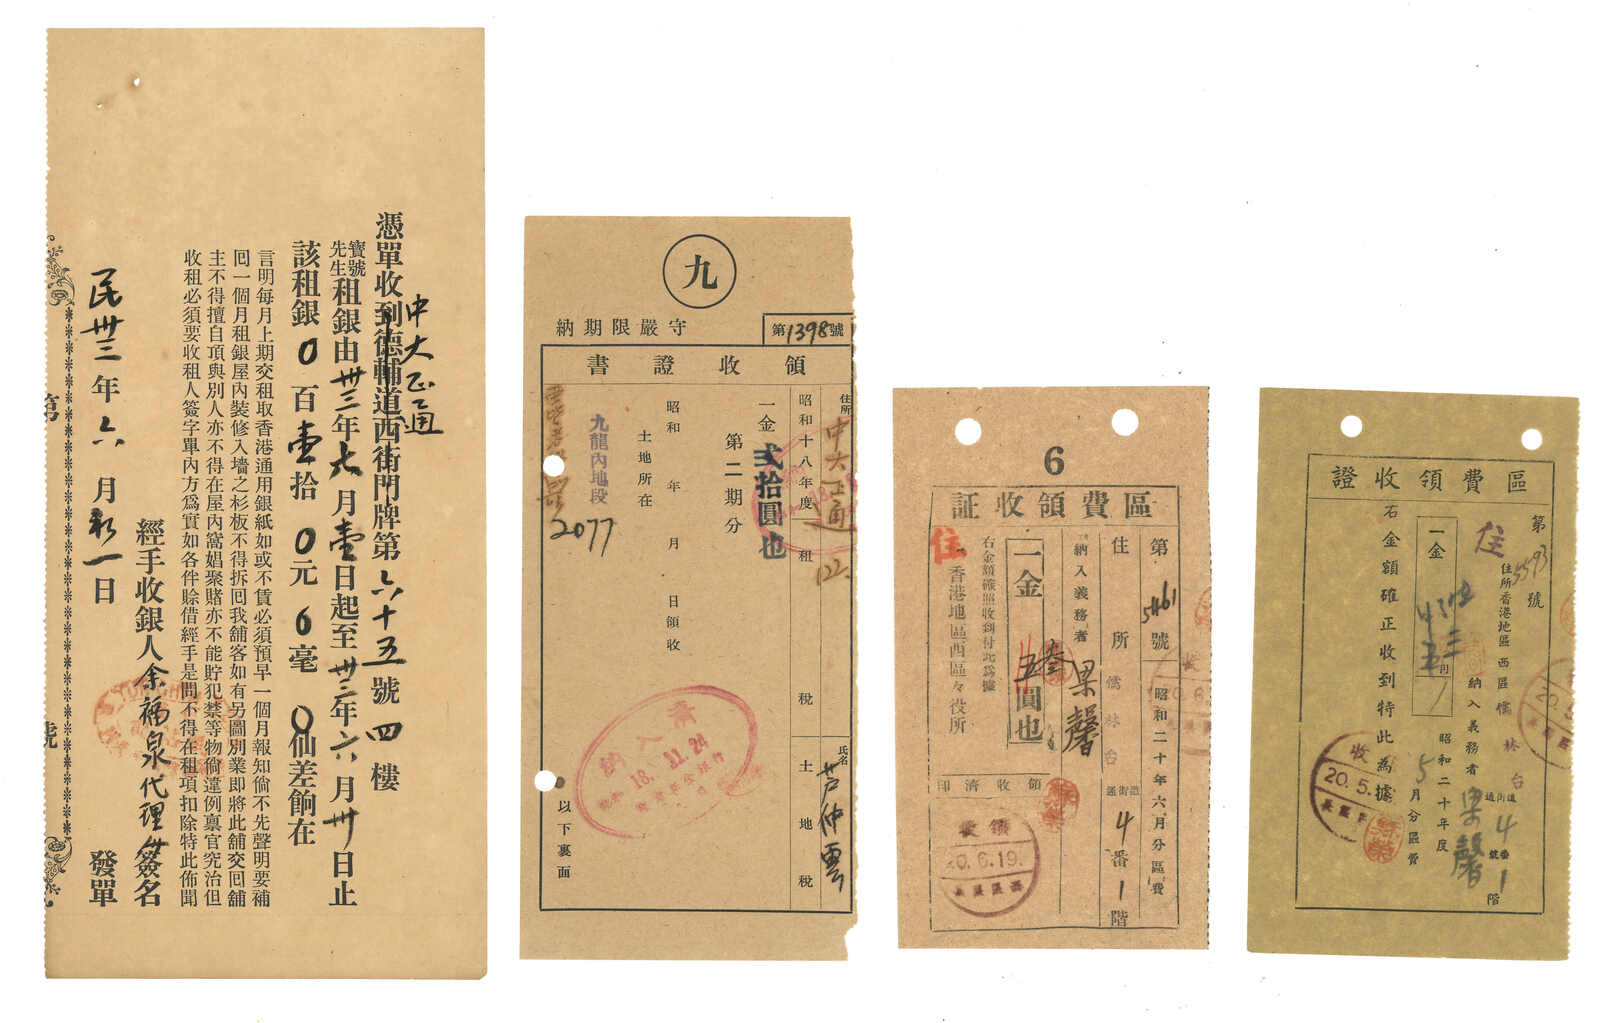 中大正通
憑單收到德輔道西街門牌第六十五號四樓
寶號
先生
租銀由卅三年七月壹日起至卅三年六月卅日止
該租銀0百壹拾0元6毫0仙差餉在
言明每月上期交租取香港通用銀紙如或不賃必須預早一個月報知倘不先聲明要補
囘一個月租銀屋內裝修入墻之杉板不得拆囘我舖客如有另圖別業即將此舖交囘舖
主不得擅自頂與別人亦不得在屋內窩娼聚賭亦不能貯犯禁等物倘違例禀官究治但
收租必須要收租人簽字單內方爲實如各件賒借經手是問不得在租項扣除特此佈聞
經手收銀人余福泉代理簽名
民卅三年六月初一日 發單
第 號
九
納期限嚴守
第1398號
領收證書
住所 中大正通 122.
昭和十八年度 租稅 土地稅
氏名 芦仲雲
一金 弐拾圓也
第二期分
昭和 年 月 日領收
土地所在
九龍內地段
2077
以下裏面
納入濟
18.11.24
6
区費領收証
第5461號 昭和二十年六月分區費
住所 儒林台 道街通 4番1階
納入義務者 梁馨
一金 五圓也
右金額確照收到付此為據
香港地區西區々役所
住
領收濟印
領收
20.6.19.
西區區長
區費領收證
第5593號
住
住所香港地區西區儒林台 道街通 4番號 1階
納入義務者 梁馨
昭和二十年度5月分區費
一金
右金額確正收到特此為據
收
20.5.
區長